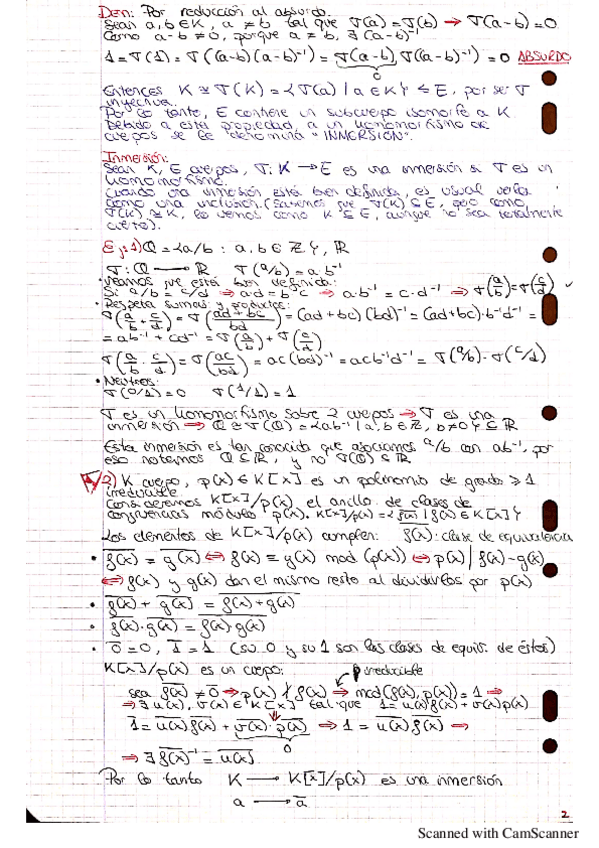 Dem: Por reducción al absurdo.
Sean a,b∈K, a≠b tal que σ(a)=σ(b) → σ(a-b)=0
Como a-b≠0, porque a≠b, ∃(a-b)⁻¹
1=σ(1)=σ((a-b)(a-b)⁻¹)=σ(a-b)·σ((a-b)⁻¹)=0 ABSURDO
0
Entonces K≅σ(K)={σ(a) | a∈K} ≤ E, por ser σ
inyectiva.
Por lo tanto, E contiene un subcuerpo isomorfo a K.
Debido a esta propiedad, a un homomorfismo de
cuerpos se le denomina "INMERSIÓN".
Inmersión:
Sean K, E cuerpos, σ: K → E es una inmersión si σ es un
homomorfismo.
Cuando una inmersión está bien definida, es usual verla
como una inclusión. (Sabemos que σ(K)⊆E, pero como
σ(K)≅K, lo vemos como K⊆E, aunque no sea totalmente
cierto).
Ej: 1) Q={a/b : a,b∈Z}, R
σ: Q → R σ(a/b)=a·b⁻¹
Veamos que está bien definida:
Si a/b=c/d ⇒ a·d=b·c ⇒ a·b⁻¹=c·d⁻¹ ⇒ σ(a/b)=σ(c/d) ✓
• Respeta sumas y productos:
σ(a/b+c/d)=σ((ad+bc)/bd)=(ad+bc)(bd)⁻¹=(ad+bc)·b⁻¹d⁻¹=
=ab⁻¹+cd⁻¹=σ(a/b)+σ(c/d)
σ(a/b·c/d)=σ(ac/bd)=ac(bd)⁻¹=acb⁻¹d⁻¹=σ(a/b)·σ(c/d)
• Neutros:
σ(0/1)=0 σ(1/1)=1
σ es un homomorfismo sobre 2 cuerpos ⇒ σ es una
inmersión ⇒ Q≅σ(Q)={ab⁻¹ | a,b∈Z, b≠0}⊆R
Esta inmersión es tan conocida que asociamos a/b con ab⁻¹, por
eso notamos Q⊆R, y no σ(Q)⊆R
2) K cuerpo, p(x)∈K[x] es un polinomio de grado ≥1
irreducible
Consideremos K[x]/p(x) el anillo de clases de
congruencias módulo p(x). K[x]/p(x)={f̅(̅x̅)̅ | f(x)∈K[x]}
Los elementos de K[x]/p(x) cumplen: f̅(̅x̅)̅: clase de equivalencia
• f̅(̅x̅)̅=g̅(̅x̅)̅ ⇔ f(x)≡g(x) mod (p(x)) ⇔ p(x) | f(x)-g(x)
⇔ f(x) y g(x) dan el mismo resto al dividirlos por p(x)
• f̅(̅x̅)̅ + g̅(̅x̅)̅ = f̅(̅x̅)̅+̅g̅(̅x̅)̅
• f̅(̅x̅)̅·g̅(̅x̅)̅ = f̅(̅x̅)̅·̅g̅(̅x̅)̅
• 0̅=0, 1̅=1 (su 0 y su 1 son las clases de equiv. de éstos)
K[x]/p(x) es un cuerpo: p irreducible
sea f̅(̅x̅)̅≠0̅ ⇒ p(x)∤f(x) ⇒ mcd(f(x),p(x))=1 ⇒
⇒ ∃u(x),v(x)∈K[x] tal que 1=u(x)f(x)+v(x)p(x)
1̅=u̅(̅x̅)̅f̅(̅x̅)̅+v̅(̅x̅)̅·p̅(̅x̅)̅ ⇒ 1=u̅(̅x̅)̅f̅(̅x̅)̅ ⇒
0
⇒ ∃f̅(̅x̅)̅⁻¹=u̅(̅x̅)̅
Por lo tanto K → K[x]/p(x) es una inmersión
a → a̅
2
Scanned with CamScanner